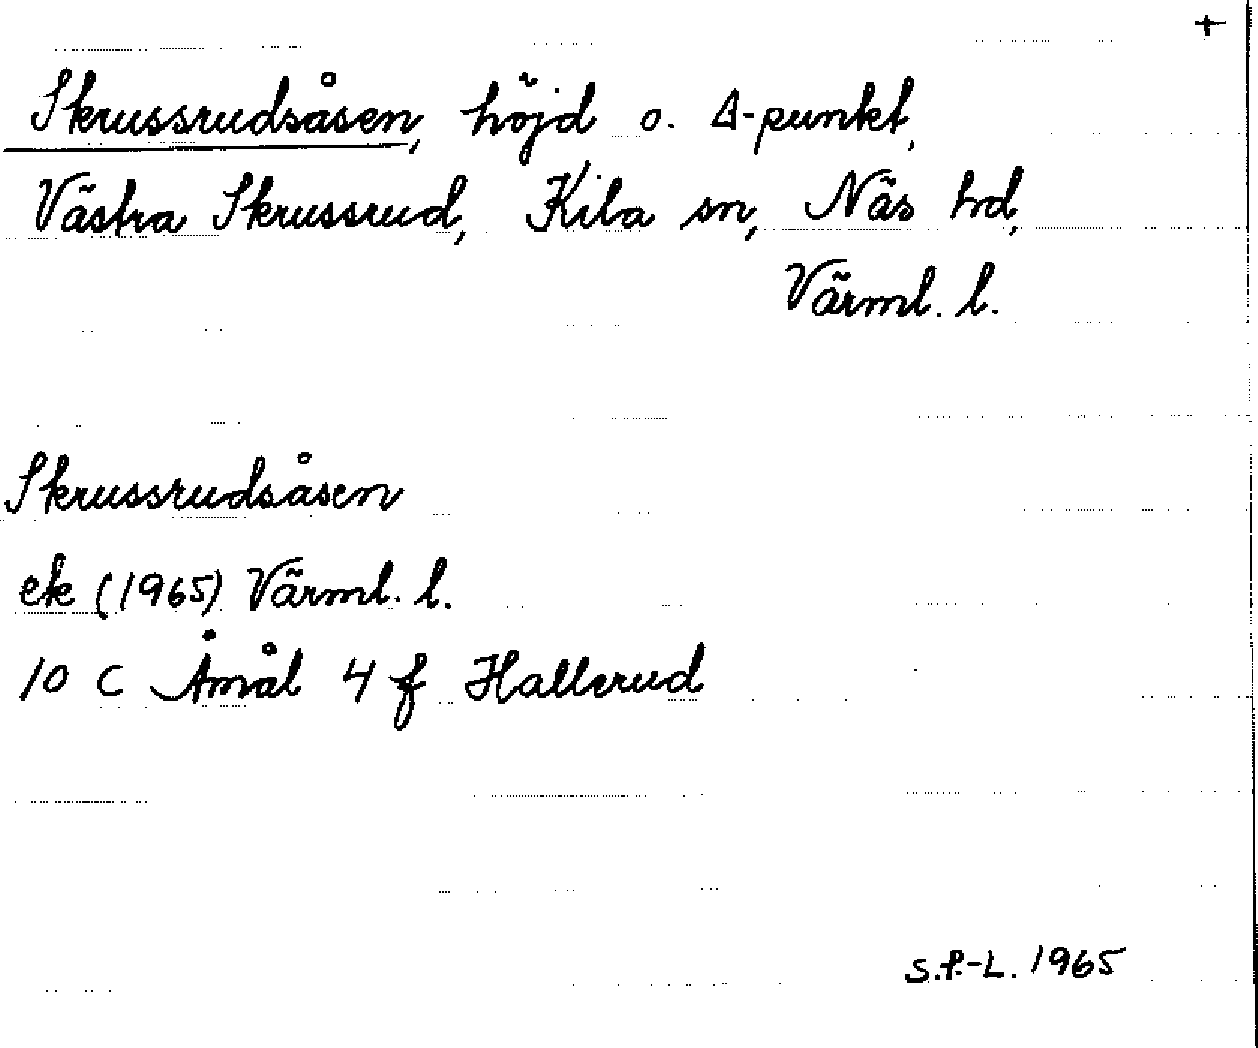 +
Skrussrudsåsen, höjd o. Δ-punkt,
Västra Skrussrud, Kila sn, Näs hd,
Värml. l.
Skrussrudsåsen
ek (1965) Värml. l.
10 C Åmål 4 f Hallerud
S.P.-L. 1965